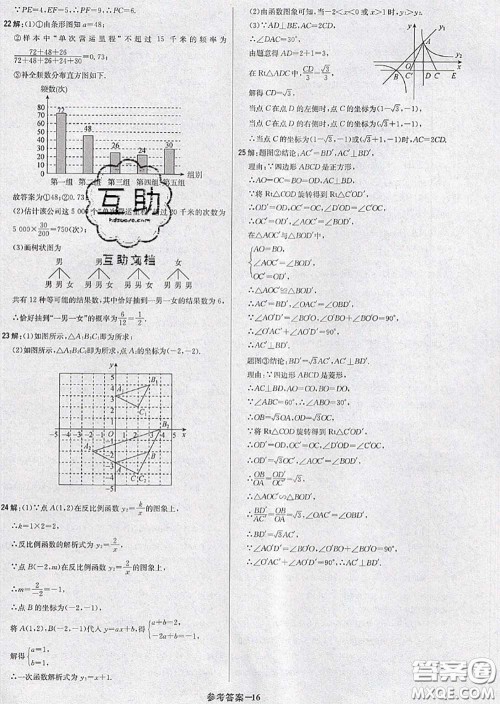 ∵PE=4,EF=5,∴PF=9,∴PC=3.
22 解:(1)①由条形图知a=48;
②样本中“单次营运里程”不超过15千米的频率为
72+48+26/72+48+26+24+30=0.73
③补全频数分布直方图如下.
频数(次)
80
70
60
50
40
30
20
10
0
72
48
26
24
30
第一组 第二组 第三组 第四组 第五组
组别
故答案为①48;②0.73.
(2)估计该公司这5 000个
20千米的次数为
5 000×30/200=750(次);
(3)画树状图为
男 男 男 女
男男女 男男女 男男女 男男男
共有12种等可能的结果数,其中恰好抽到一男一女的结果数为6,
∴恰好抽到“一男一女”的概率为6/12=1/2.
23 解:(1)如图所示,△A₁B₁C₁即为所求;
(2)如图所示,△A₂B₂C₂即为所求,点A₂的坐标为(-2,-2).
24 解:(1)∵点A(1,2)在反比例函数y₂=k/x的图象上,
∴k=1×2=2,
∴反比例函数的解析式为y₂=2/x,
∵点B(-2,m)在反比例函数y₂=2/x的图象上,
∴m=2/-2=-1,
∴点B的坐标为(-2,-1),
将A(1,2),B(-2,-1)代入y=ax+b,得{a+b=2,-2a+b=-1,
解得{a=1,b=1,
∴一次函数解析式为y₁=x+1.
(2)由函数图象可知,当-2<x<0或x>1时,y₁>y₂.
(3)∵AC=2CD,AD⊥x轴,
∴∠DAC=30°.
由题意得AD=2+1=3,
在Rt△ADC中,CD/3=√3/3,
解得CD=√3.
当点C在点D的左侧时,点C的坐标为(1-√3,-1),
当点C在点D的右侧时,点C的坐标为(√3+1,-1),
∴当点C的坐标为(1-√3,-1)或(√3+1,-1)时,AC=2CD.
25 解:题图②结论:AC'=BD',AC'⊥BD'.
理由:∵四边形ABCD是正方形,
∴AO=OC=BO=OD,AC⊥BD.
∵将Rt△COD旋转得到Rt△C'OD',
∴OD'=OD,OC'=OC,∠D'OD=∠C'OC,
∴AO=BO,OC'=OD',∠AOC'=∠BOD'.
在△AOC'与△BOD'中,
{AO=BO,
∠AOC'=∠BOD',
OC'=OD',
∴△AOC'≌△BOD',
∴AC'=BD',∠OAC'=∠OBD'.
∵∠AO'D'=∠BO'O,∠O'BO+∠BO'O=90°,
∴∠O'AC'+∠AO'D'=90°,
∴AC'⊥BD'.
题图③结论:BD'=√3AC',AC'⊥BD'.
理由:∵四边形ABCD是菱形,
∴AC⊥BD,AO=CO,BO=DO.
∵∠ABC=60°,∴∠ABO=30°,
∴OB=√3OA,OD=√3OC.
∵将Rt△COD旋转得到Rt△C'OD',
∴OD'=OD,OC'=OC,∠D'OD=∠C'OC,
∴OD'=√3OC',∠AOC'=∠BOD',
∴OB/OA=OD'/OC'=√3,
∴△AOC'∽△BOD',
∴BD'/AC'=OB/OA=√3,∠OAC'=∠OBD',
∴BD'=√3AC'.
∵∠AO'D'=∠BO'O,∠O'BO+∠BO'O=90°,
∴∠O'AC'+∠AO'D'=90°,
∴AC'⊥BD'.
互助
互助文档
参考答案—16